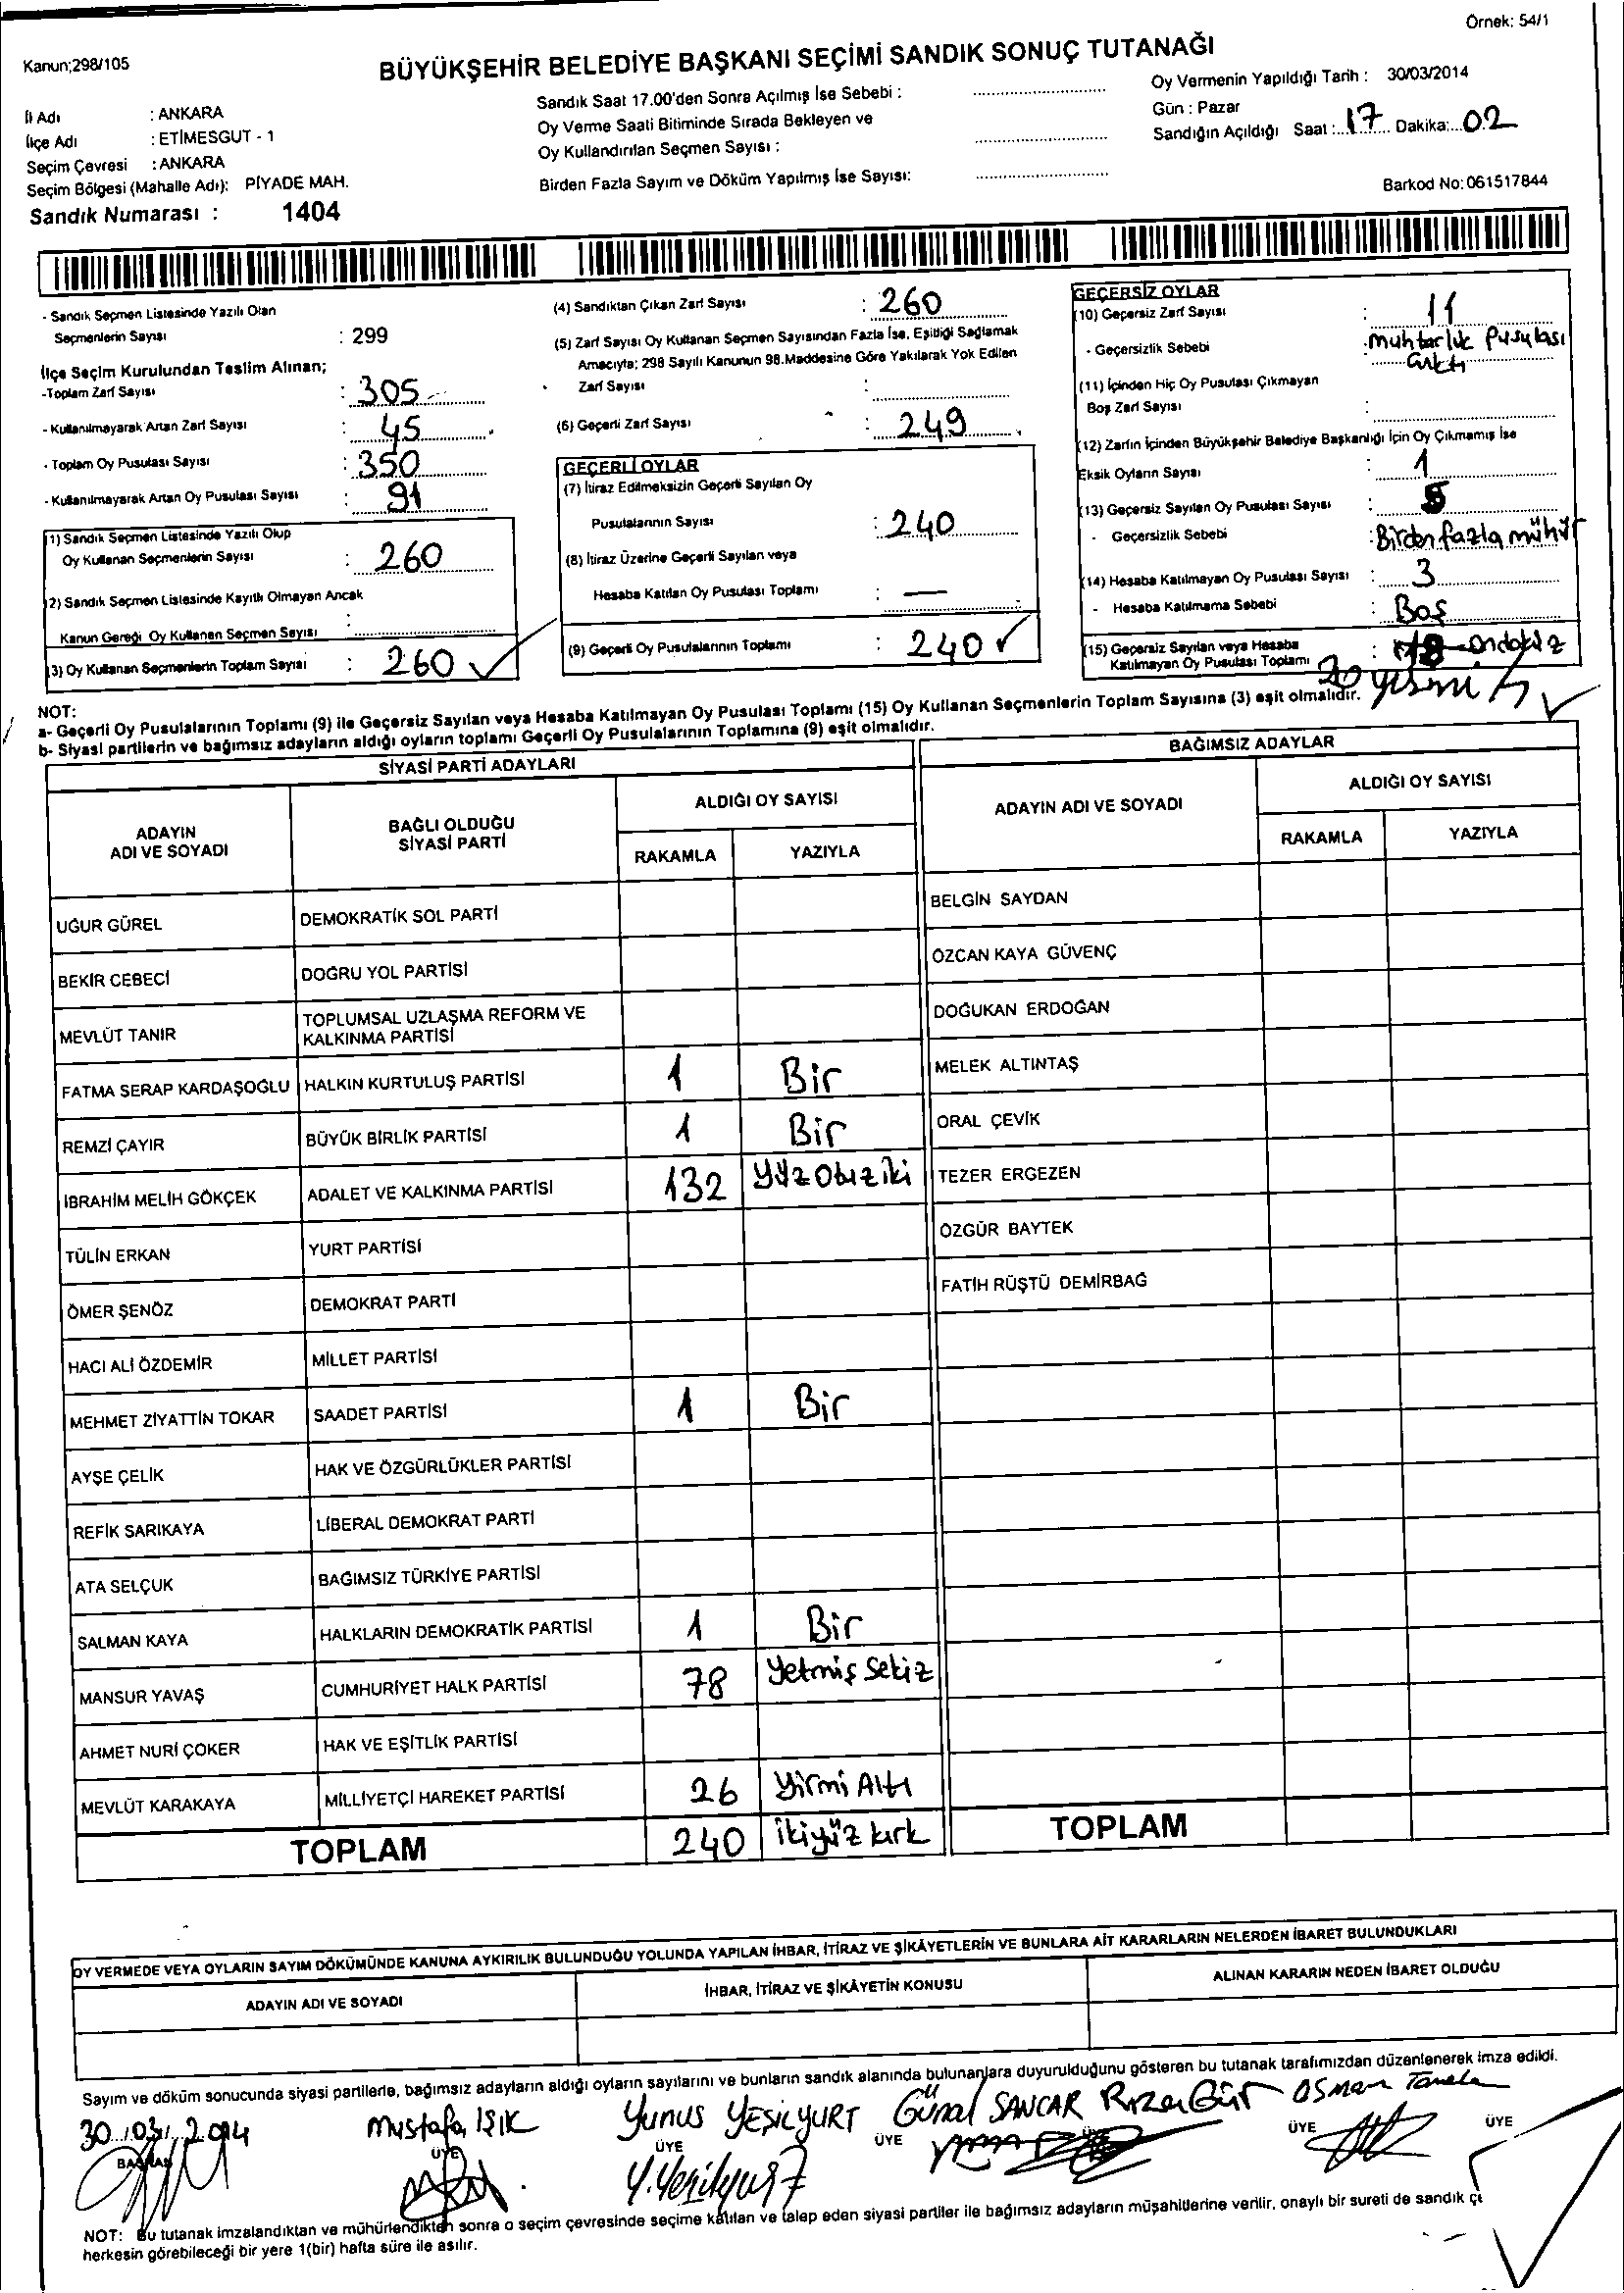 Örnek: 54/1
Kanun;298/105
BÜYÜKŞEHİR BELEDİYE BAŞKANI SEÇİMİ SANDIK SONUÇ TUTANAĞI
İl Adı : ANKARA
İlçe Adı : ETİMESGUT - 1
Seçim Çevresi : ANKARA
Seçim Bölgesi (Mahalle Adı): PİYADE MAH.
Sandık Numarası : 1404
Sandık Saat 17.00'den Sonra Açılmış İse Sebebi :
Oy Verme Saati Bitiminde Sırada Bekleyen ve
Oy Kullandırılan Seçmen Sayısı :
Birden Fazla Sayım ve Döküm Yapılmış İse Sayısı:
Oy Vermenin Yapıldığı Tarih : 30/03/2014
Gün : Pazar
Sandığın Açıldığı Saat : 17 Dakika: 02
Barkod No: 061517844
- Sandık Seçmen Listesinde Yazılı Olan
Seçmenlerin Sayısı : 299
İlçe Seçim Kurulundan Teslim Alınan;
-Toplam Zarf Sayısı : 305
- Kullanılmayarak Artan Zarf Sayısı : 45
- Toplam Oy Pusulası Sayısı : 350
- Kullanılmayarak Artan Oy Pusulası Sayısı : 91
1) Sandık Seçmen Listesinde Yazılı Olup
Oy Kullanan Seçmenlerin Sayısı : 260
2) Sandık Seçmen Listesinde Kayıtlı Olmayan Ancak
Kanun Gereği Oy Kullanan Seçmen Sayısı :
3) Oy Kullanan Seçmenlerin Toplam Sayısı : 260
(4) Sandıktan Çıkan Zarf Sayısı : 260
(5) Zarf Sayısı Oy Kullanan Seçmen Sayısından Fazla İse, Eşitliği Sağlamak
Amacıyla; 298 Sayılı Kanunun 98.Maddesine Göre Yakılarak Yok Edilen
Zarf Sayısı :
(6) Geçerli Zarf Sayısı : 249
GEÇERLİ OYLAR
(7) İtiraz Edilmeksizin Geçerli Sayılan Oy
Pusulalarının Sayısı : 240
(8) İtiraz Üzerine Geçerli Sayılan veya
Hesaba Katılan Oy Pusulası Toplamı : —
(9) Geçerli Oy Pusulalarının Toplamı : 240
GEÇERSİZ OYLAR
(10) Geçersiz Zarf Sayısı : 11
- Geçersizlik Sebebi : muhtarlık Pusulası
çıktı
(11) İçinden Hiç Oy Pusulası Çıkmayan
Boş Zarf Sayısı :
(12) Zarfın İçinden Büyükşehir Belediye Başkanlığı İçin Oy Çıkmamış İse
Eksik Oyların Sayısı : 1
(13) Geçersiz Sayılan Oy Pusulası Sayısı : 5
- Geçersizlik Sebebi : Birden fazla mühür
(14) Hesaba Katılmayan Oy Pusulası Sayısı : 3
- Hesaba Katılmama Sebebi : Boş
(15) Geçersiz Sayılan veya Hesaba
Katılmayan Oy Pusulası Toplamı : 20 yirmi
NOT:
a- Geçerli Oy Pusulalarının Toplamı (9) ile Geçersiz Sayılan veya Hesaba Katılmayan Oy Pusulası Toplamı (15) Oy Kullanan Seçmenlerin Toplam Sayısına (3) eşit olmalıdır.
b- Siyasi partilerin ve bağımsız adayların aldığı oyların toplamı Geçerli Oy Pusulalarının Toplamına (9) eşit olmalıdır.
SİYASİ PARTİ ADAYLARI
ADAYIN ADI VE SOYADI BAĞLI OLDUĞU SİYASİ PARTİ ALDIĞI OY SAYISI
RAKAMLA YAZIYLA
UĞUR GÜREL DEMOKRATİK SOL PARTİ
BEKİR CEBECİ DOĞRU YOL PARTİSİ
MEVLÜT TANIR TOPLUMSAL UZLAŞMA REFORM VE KALKINMA PARTİSİ
FATMA SERAP KARDAŞOĞLU HALKIN KURTULUŞ PARTİSİ 1 Bir
REMZİ ÇAYIR BÜYÜK BİRLİK PARTİSİ 1 Bir
İBRAHİM MELİH GÖKÇEK ADALET VE KALKINMA PARTİSİ 132 yüz Otuz iki
TÜLİN ERKAN YURT PARTİSİ
ÖMER ŞENÖZ DEMOKRAT PARTİ
HACI ALİ ÖZDEMİR MİLLET PARTİSİ
MEHMET ZİYATTİN TOKAR SAADET PARTİSİ 1 Bir
AYŞE ÇELİK HAK VE ÖZGÜRLÜKLER PARTİSİ
REFİK SARIKAYA LİBERAL DEMOKRAT PARTİ
ATA SELÇUK BAĞIMSIZ TÜRKİYE PARTİSİ
SALMAN KAYA HALKLARIN DEMOKRATİK PARTİSİ 1 Bir
MANSUR YAVAŞ CUMHURİYET HALK PARTİSİ 78 Yetmiş Sekiz
AHMET NURİ ÇOKER HAK VE EŞİTLİK PARTİSİ
MEVLÜT KARAKAYA MİLLİYETÇİ HAREKET PARTİSİ 26 Yirmi Altı
TOPLAM 240 ikiyüz kırk
BAĞIMSIZ ADAYLAR
ADAYIN ADI VE SOYADI ALDIĞI OY SAYISI
RAKAMLA YAZIYLA
BELGİN SAYDAN
ÖZCAN KAYA GÜVENÇ
DOĞUKAN ERDOĞAN
MELEK ALTINTAŞ
ORAL ÇEVİK
TEZER ERGEZEN
ÖZGÜR BAYTEK
FATİH RÜŞTÜ DEMİRBAĞ
TOPLAM
OY VERMEDE VEYA OYLARIN SAYIM DÖKÜMÜNDE KANUNA AYKIRILIK BULUNDUĞU YOLUNDA YAPILAN İHBAR, İTİRAZ VE ŞİKÂYETLERİN VE BUNLARA AİT KARARLARIN NELERDEN İBARET BULUNDUKLARI
ADAYIN ADI VE SOYADI İHBAR, İTİRAZ VE ŞİKÂYETİN KONUSU ALINAN KARARIN NEDEN İBARET OLDUĞU
Sayım ve döküm sonucunda siyasi partilerle, bağımsız adayların aldığı oyların sayılarını ve bunların sandık alanında bulunanlara duyurulduğunu gösteren bu tutanak tarafımızdan düzenlenerek imza edildi.
30/03/2014 Mustafa IŞIK Yunus YEŞİLYURT Günal SANCAR Rıza Gür Osman
BAŞKAN ÜYE ÜYE ÜYE ÜYE ÜYE
Y.Yeşilyurt
NOT: Bu tutanak imzalandıktan ve mühürlendikten sonra o seçim çevresinde seçime katılan ve talep eden siyasi partiler ile bağımsız adayların müşahitlerine verilir, onaylı bir sureti de sandık
herkesin görebileceği bir yere 1(bir) hafta süre ile asılır.